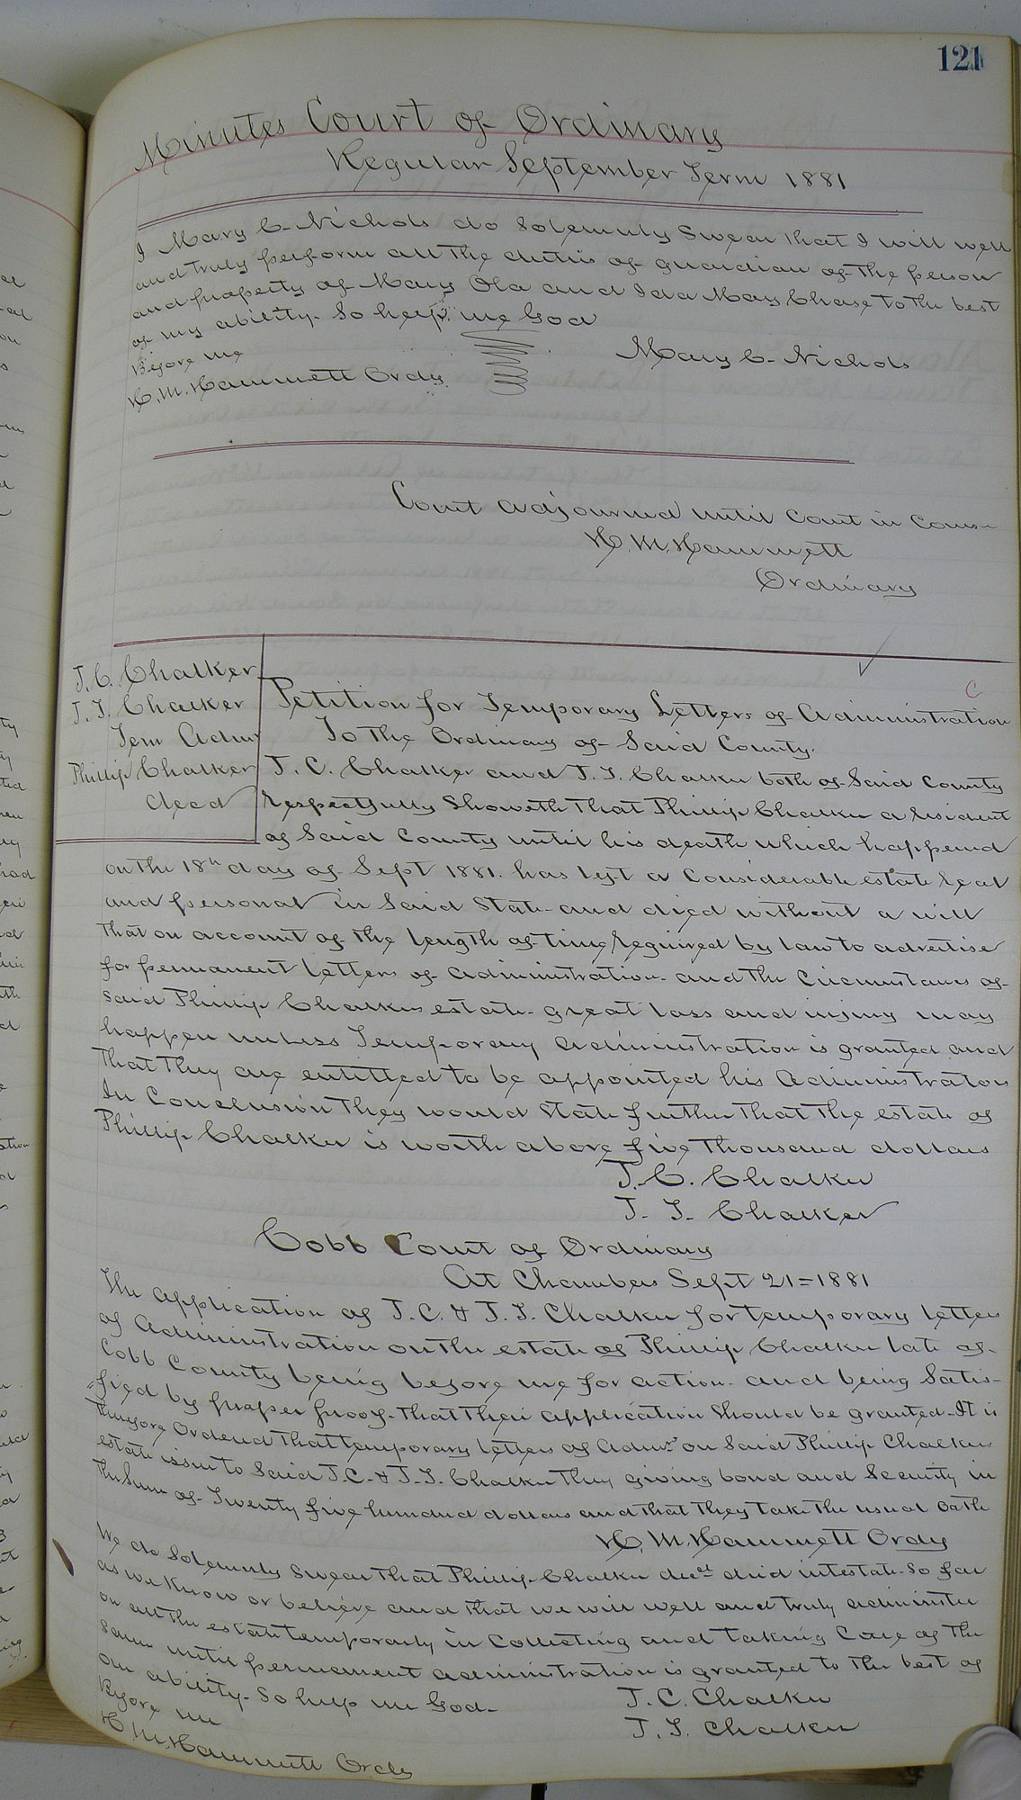 121
Minutes Court of Ordinary
Regular September Term 1881
I Mary C. Nichols do solemnly swear that I will well
and truly perform all the duties of guardian of the person
and property of Mary Ola and Ida May Chase to the best
of my ability. So help me God
Before me
Mary C. Nichols
H. M. Hammett Ordy
Court adjourned until Court in Course
H. M. Hammett
Ordinary
J. C. Chalker
J. T. Chalker
Tem Admr
Phillip Chalker
deed
Petition for Temporary Letters of Administration
To the Ordinary of Said County.
J. C. Chalker and J. T. Chalker both of Said County
respectfully Showeth that Phillip Chalker a resident
of Said County until his death which happend
on the 18th day of Sept 1881. has left a Considerable estate real
and personal in Said State and died without a will
that on account of the length of time required by law to advertise
for permanent letters of administration and the Circumstances of
said Phillip Chalkers estate great loss and injury may
happen unless Temporary administration is granted and
that they are entitled to be appointed his Administrators
In Conclusion they would State further that the estate of
Phillip Chalker is worth above five thousand dollars
J. C. Chalker
J. T. Chalker
Cobb Court of Ordinary
At Chambers Sept 21=1881
The application of J. C. & J. T. Chalker for temporary letters
of administration on the estate of Phillip Chalker late of
Cobb County being before me for action and being Satis-
"fied by proper proof that their application should be granted. It is
therefore Ordered that temporary letters of Admr on Said Phillip Chalkers
estate issue to Said J. C. & J. T. Chalker they giving bond and Security in
the Sum of Twenty five hundred dollars and that they take the usual oath
H. M. Hammett Ordy
We do Solemnly Swear that Phillip Chalker decd died intestate. So far
as we know or believe and that we will well and truly administer
on all the estate temporarly in Collecting and taking Care of the
Same until permanent administration is granted to the best of
our ability. So help me God.
J. C. Chalker
Before me
J. T. Chalker
H. M. Hammett Ordy